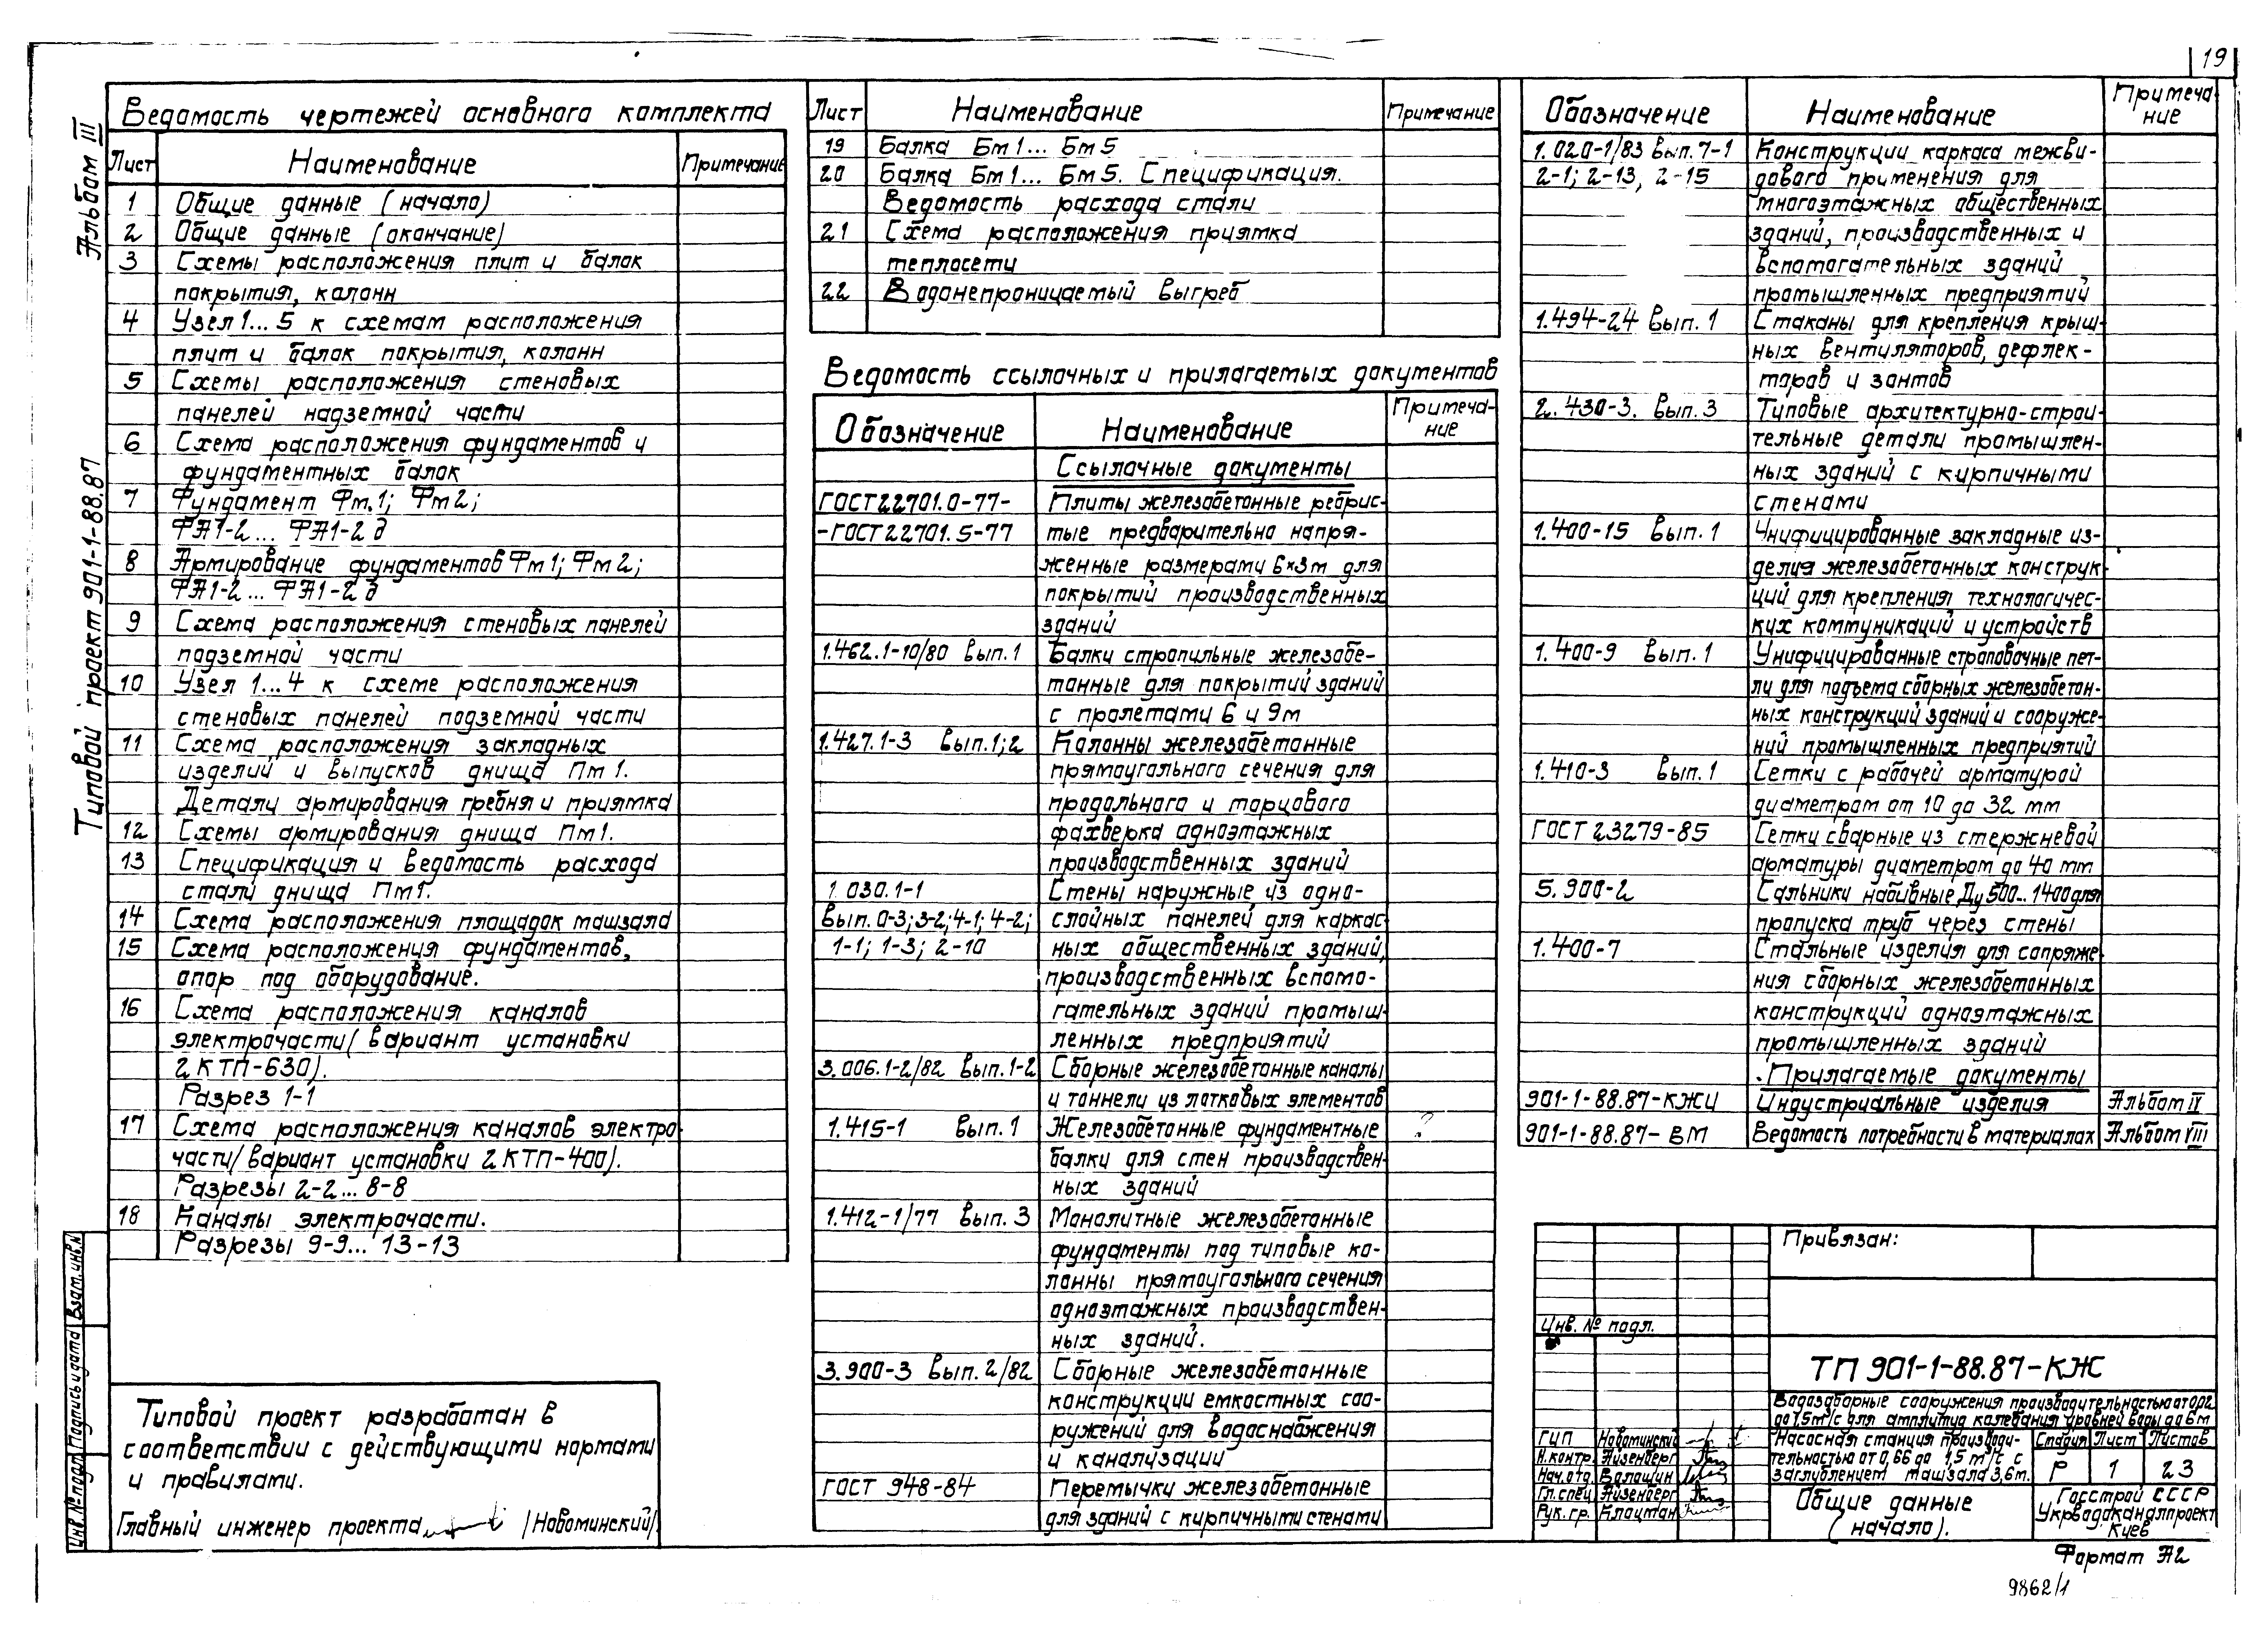 19
Альбом III
Типовой проект 901-1-88.87
Ведомость чертежей основного комплекта
Лист Наименование Примечание
1 Общие данные (начало)
2 Общие данные (окончание)
3 Схемы расположения плит и балок
покрытия, колонн
4 Узел 1... 5 к схемам расположения
плит и балок покрытия, колонн
5 Схемы расположения стеновых
панелей надземной части
6 Схема расположения фундаментов и
фундаментных балок
7 Фундамент Фм.1; Фм2;
ФА1-2... ФА1-2д
8 Армирование фундаментов Фм1; Фм2;
ФА1-2... ФА1-2д
9 Схема расположения стеновых панелей
подземной части
10 Узел 1...4 к схеме расположения
стеновых панелей подземной части
11 Схема расположения закладных
изделий и выпусков днища Пм1.
Детали армирования гребня и приямка
12 Схемы армирования днища Пм1.
13 Спецификация и ведомость расхода
стали днища Пм1.
14 Схема расположения площадок машзала
15 Схема расположения фундаментов,
опор под оборудование.
16 Схема расположения каналов
электрочасти (вариант установки
2КТП-630).
Разрез 1-1
17 Схема расположения каналов электро
части (вариант установки 2КТП-400).
Разрезы 2-2... 8-8
18 Каналы электрочасти.
Разрезы 9-9... 13-13
Типовой проект разработан в
соответствии с действующими нормами
и правилами.
Главный инженер проекта /Новоминский/
Инв.№подл. Подпись и дата Взам.инв.№
Лист Наименование Примечание
19 Балка Бм1... Бм5
20 Балка Бм1... Бм5. Спецификация.
Ведомость расхода стали
21 Схема расположения приямка
теплосети
22 Водонепроницаемый выгреб
Ведомость ссылочных и прилагаемых документов
Обозначение Наименование Примеча-
ние
Ссылочные документы
ГОСТ22701.0-77- Плиты железобетонные ребрис-
-ГОСТ22701.5-77 тые предварительно напря-
женные размерами 6×3м для
покрытий производственных
зданий
1.462.1-10/80 Вып.1 Балки стропильные железобе-
тонные для покрытий зданий
с пролетами 6 и 9м
1.427.1-3 Вып.1;2 Колонны железобетонные
прямоугольного сечения для
продольного и торцового
фахверка одноэтажных
производственных зданий
1 030.1-1 Стены наружные из одно-
Вып. 0-3; 3-2; 4-1; 4-2; слойных панелей для каркас
1-1; 1-3; 2-10 ных общественных зданий,
производственных вспомо-
гательных зданий промыш-
ленных предприятий
3.006.1-2/82 Вып.1-2 Сборные железобетонные каналы
и тоннели из лотковых элементов
1.415-1 Вып.1 Железобетонные фундаментные
балки для стен производствен-
ных зданий
1.412-1/77 Вып. 3 Монолитные железобетонные
фундаменты под типовые ко-
лонны прямоугольного сечения
одноэтажных производствен-
ных зданий.
3.900-3 Вып. 2/82 Сборные железобетонные
конструкции емкостных соо-
ружений для водоснабжения
и канализации
ГОСТ 948-84 Перемычки железобетонные
для зданий с кирпичными стенами
Обозначение Наименование Примеча-
ние
1.020-1/83 Вып.7-1 Конструкции каркаса межви-
2-1; 2-13, 2-15 дового применения для
многоэтажных общественных
зданий, производственных и
вспомогательных зданий
промышленных предприятий
1.494-24 Вып. 1 Стаканы для крепления крыш-
ных вентиляторов, дефлек-
торов и зонтов
2.430-3. Вып. 3 Типовые архитектурно-строи-
тельные детали промышлен-
ных зданий с кирпичными
стенами
1.400-15 Вып. 1 Унифицированные закладные из-
делия железобетонных конструк
ций для крепления технологичес-
ких коммуникаций и устройств
1.400-9 Вып. 1 Унифицированные строповочные пет-
ли для подъема сборных железобетон-
ных конструкций зданий и сооруже-
ний промышленных предприятий
1.410-3 Вып. 1 Сетки с рабочей арматурой
диаметром от 10 до 32 мм
ГОСТ 23279-85 Сетки сварные из стержневой
арматуры диаметром до 40 мм
5.900-2 Сальники набивные Ду 500...1400 для
пропуска труб через стены
1.400-7 Стальные изделия для сопряже-
ния сборных железобетонных
конструкций одноэтажных
промышленных зданий
Прилагаемые документы
901-1-88.87-КЖИ Индустриальные изделия Альбом IV
901-1-88.87-ВМ Ведомость потребности в материалах Альбом VIII
Привязан:
Инв. № подл.
ТП 901-1-88.87-КЖ
Водозаборные сооружения производительностью от 0,02
до 1,5м³/с для амплитуд колебания уровней воды до 6м
ГИП Новоминский
Н.контр. Айзенберг
Нач.отд. Волошин
Гл.спец Айзенберг
Рук.гр. Клоцман
Насосная станция производи-
тельностью от 0,66 до 1,5 м³/с с
заглублением машзала 3,6м.
Стадия Лист Листов
Р 1 23
Общие данные
(начало).
Госстрой СССР
Укрводоканалпроект
Киев
Формат А2
9862/1